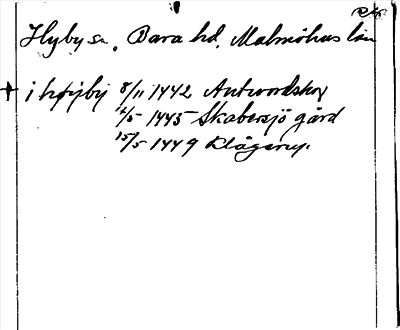 Hyby sn, Bara hd, Malmöhus län
+ i høyby 8/11 1442 Antwordskow
12/5 1445 Skabersjö gård
15/5 1449 Klågerup.